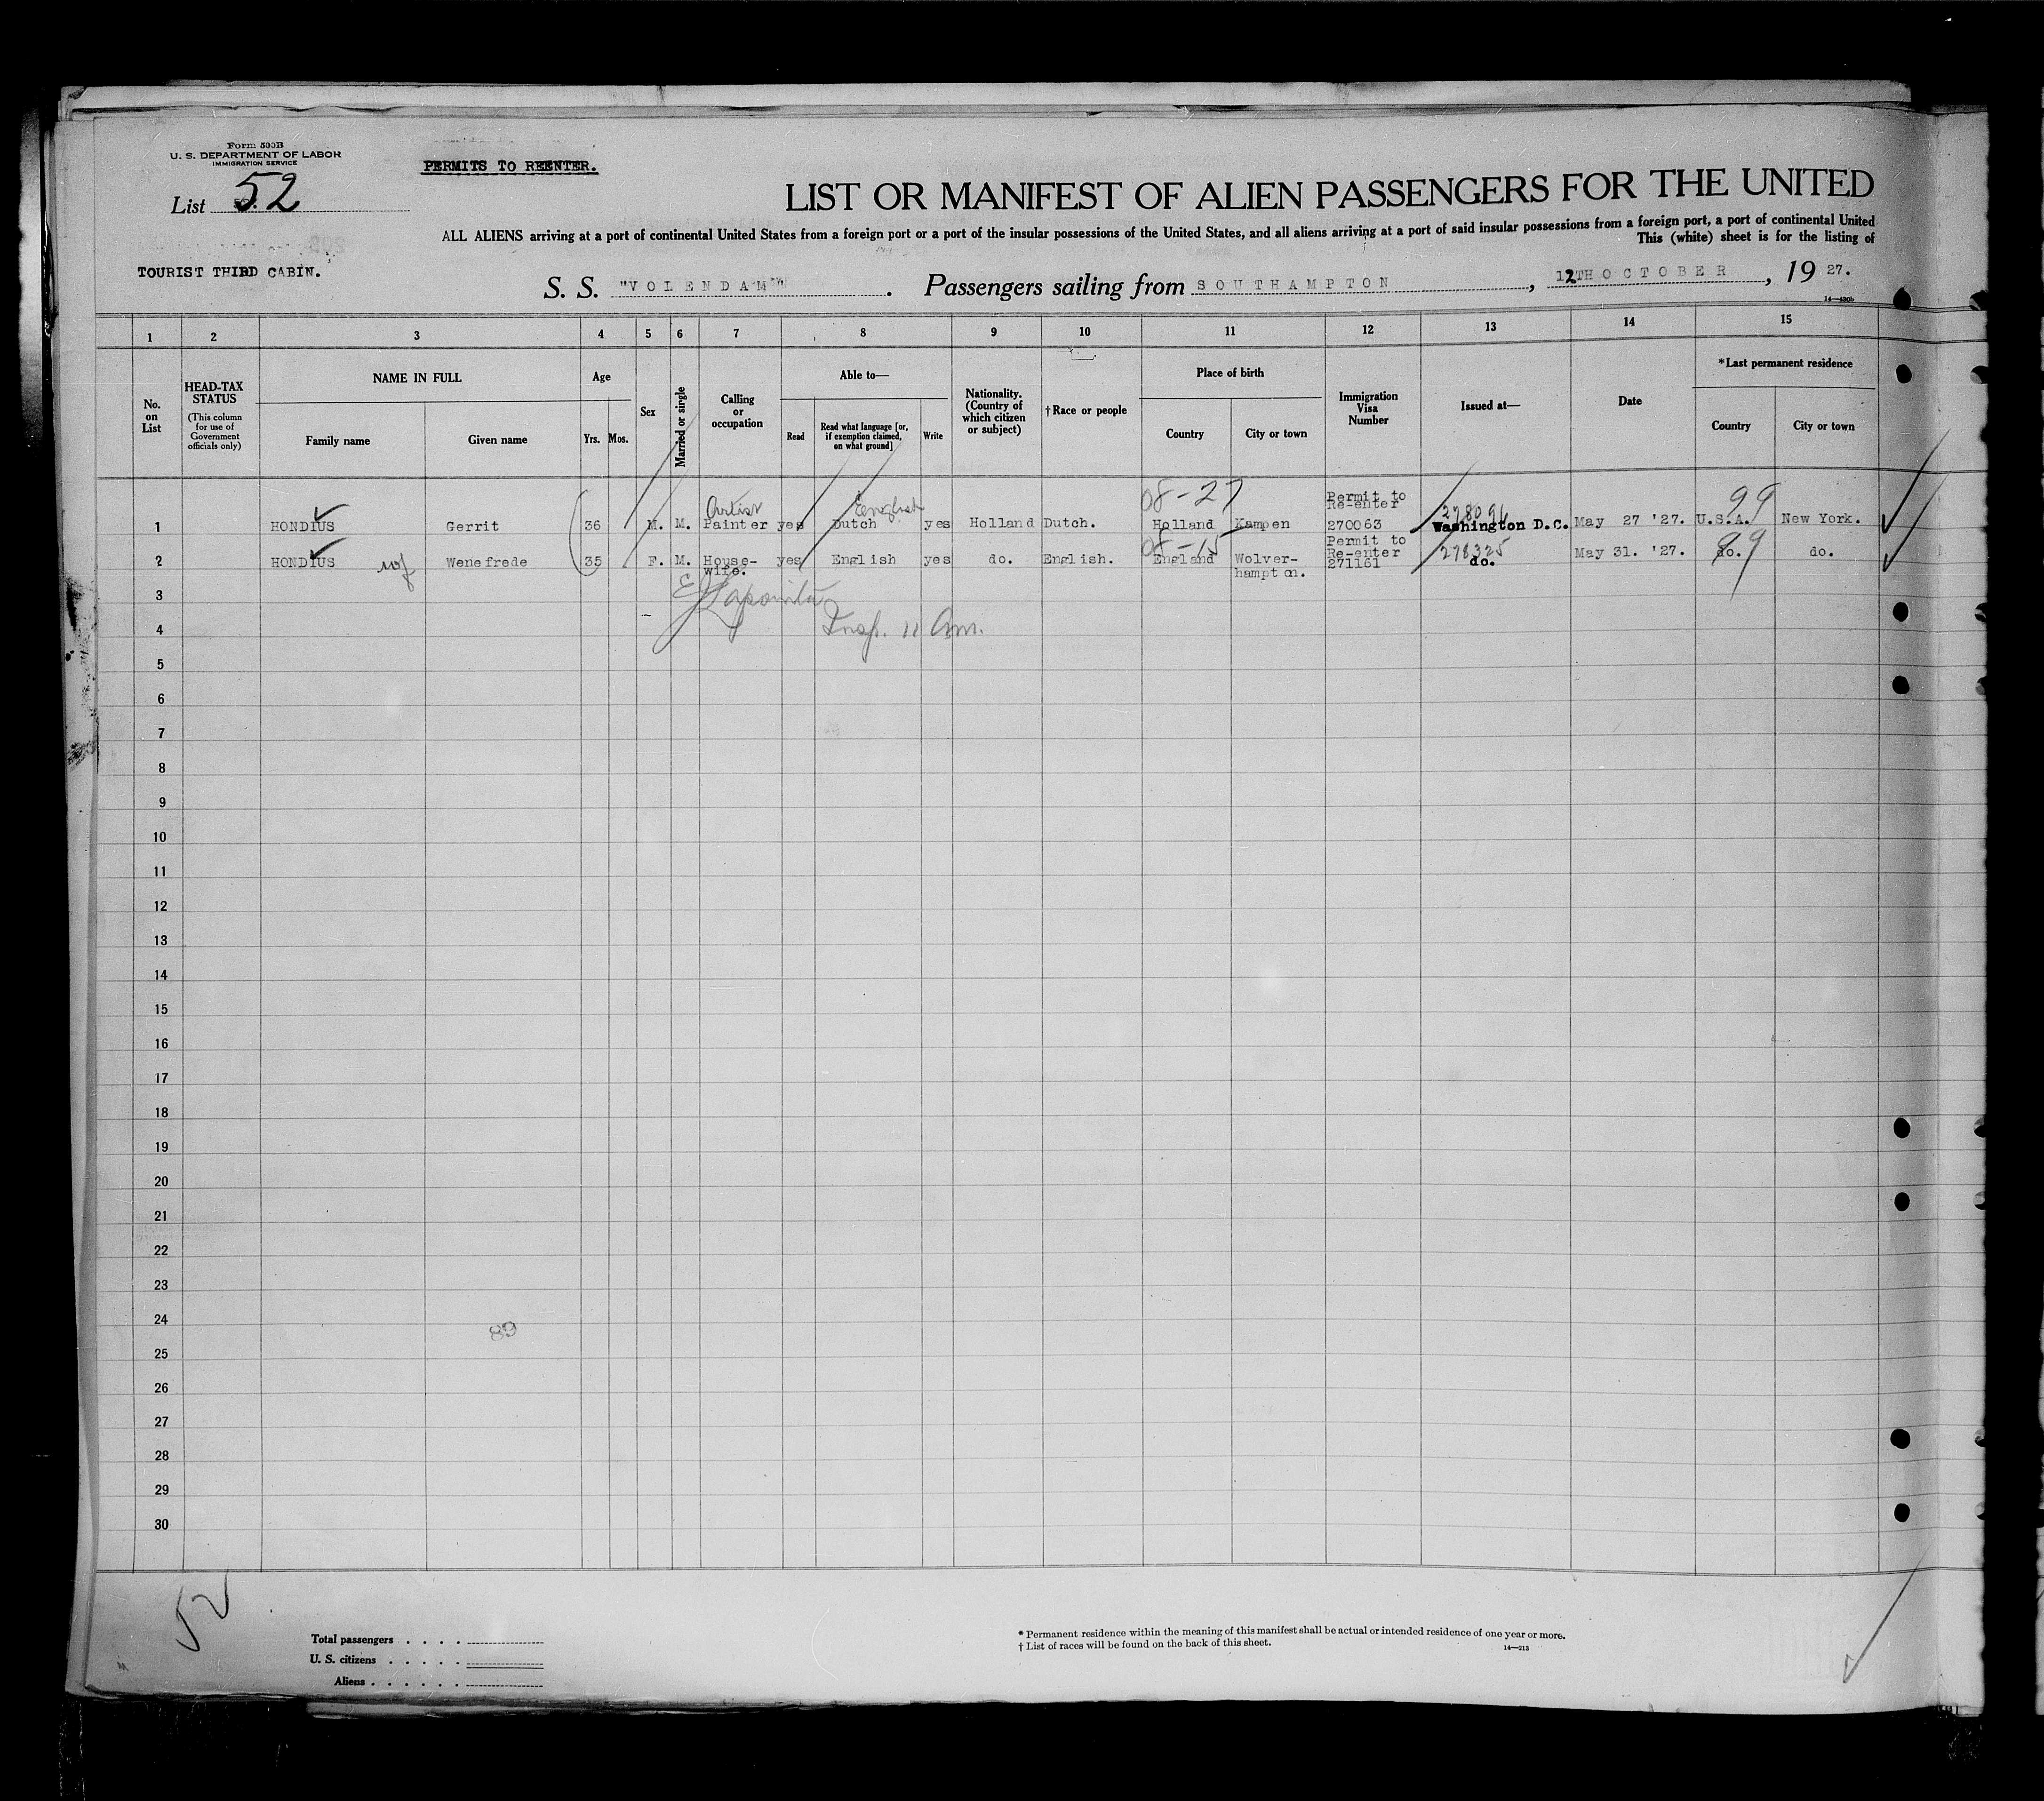 Form 500B
U. S. DEPARTMENT OF LABOR
IMMIGRATION SERVICE
PERMITS TO REENTER.
List 52
LIST OR MANIFEST OF ALIEN PASSENGERS FOR THE UNITED
ALL ALIENS arriving at a port of continental United States from a foreign port or a port of the insular possessions of the United States, and all aliens arriving at a port of said insular possessions from a foreign port, a port of continental United
This (white) sheet is for the listing of
TOURIST THIRD CABIN.
S. S. "VOLENDAM". Passengers sailing from SOUTHAMPTON, 12TH OCTOBER, 1927.
1 2 3 4 5 6 7 8 9 10 11 12 13 14 15
No. on List
HEAD-TAX STATUS
(This column for use of Government officials only)
NAME IN FULL
Family name Given name
Age
Yrs. Mos.
Sex
Married or single
Calling or occupation
Able to—
Read
Read what language [or, if exemption claimed, on what ground]
Write
Nationality. (Country of which citizen or subject)
†Race or people
Place of birth
Country City or town
Immigration Visa Number
Issued at—
Date
*Last permanent residence
Country City or town
Artist English 08-27 Permit to Re-enter 278096 99
1 HONDIUS Gerrit 36 M. M. Painter yes Dutch yes Holland Dutch. Holland Kampen 270063 Washington D.C. May 27 '27. U.S.A. New York.
08-15 Permit to Re-enter 278325 99
2 HONDIUS wf Wenefrede 35 F. M. House-wife. yes English yes do. English. England Wolver-hampton. 271161 do. May 31. '27. do. do.
3
4 Insp. 11 Am.
5
6
7
8
9
10
11
12
13
14
15
16
17
18
19
20
21
22
23
24
89
25
26
27
28
29
30
52
Total passengers
U. S. citizens
Aliens
* Permanent residence within the meaning of this manifest shall be actual or intended residence of one year or more.
† List of races will be found on the back of this sheet.
14—213